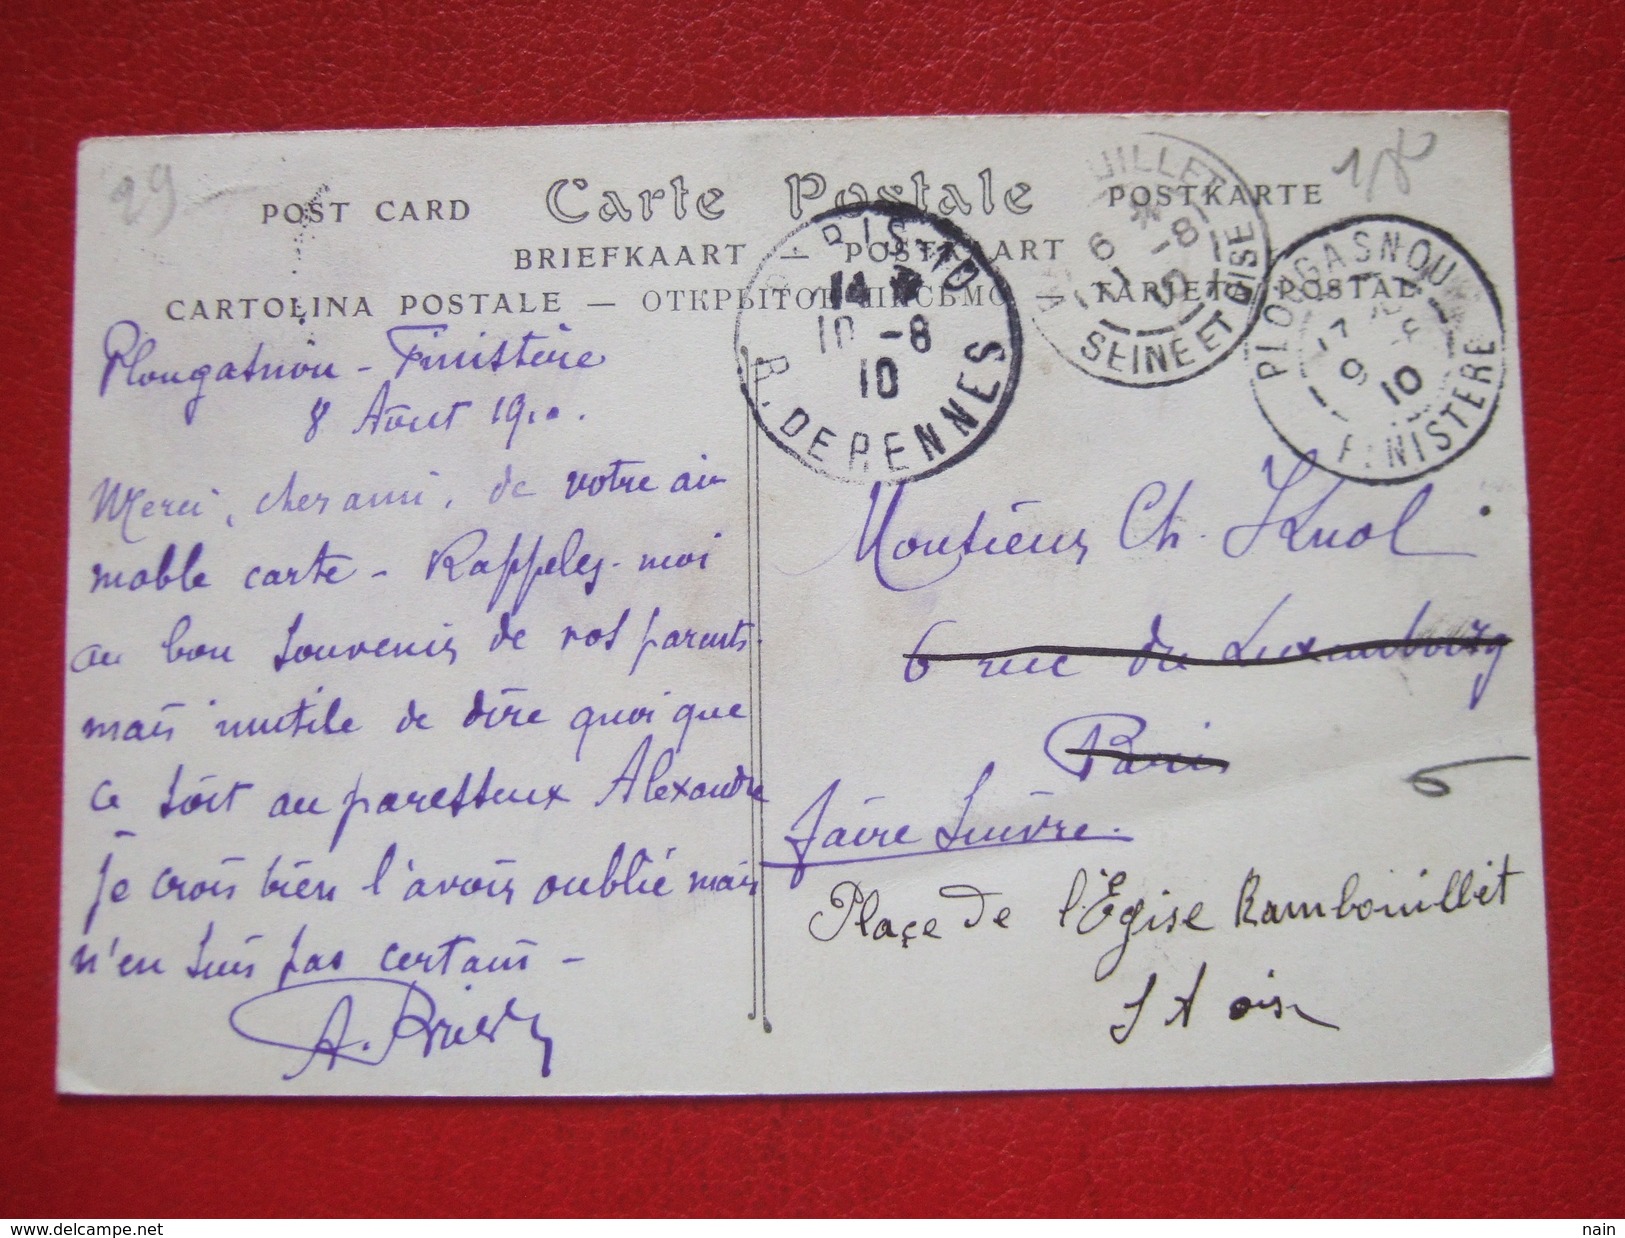 29
1 50
POST CARD Carte Postale POSTKARTE
BRIEFKAART — POSTKAART
CARTOLINA POSTALE — ОТКРЫТОЕ ПИСЬМО — TARJETA POSTAL
PARIS-10
14
10 -8
10
R. DE RENNES
OUILLET
6 * -8
SEINE ET OISE
PLOUGASNOU
17
9
10
FINISTERE
Plougasnou - Finistère
8 Août 1910.
Merci, cher ami, de votre ai
mable carte - Rappelez-moi
au bon souvenir de vos parents.
mais inutile de dire quoi que
ce soit au paresseux Alexandre
je crois bien l'avoir oublié mais
n'en suis pas certain -
A.
Monsieur Ch. Knol
6 rue du Luxembourg
Paris
faire Suivre.
Place de l'Eglise Rambouillet
S et oise
delcampe.net
nain